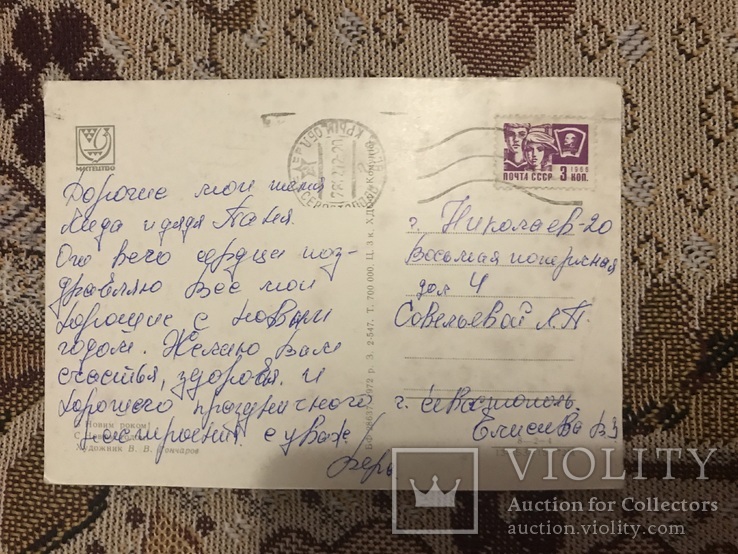 МИСТЕЦТВО
Дорогие мои тетя
Лида и дядя Ваня.
Ото всего сердца поз-
дравляю Вас мои
хорошие с новым
годом. Желаю вам
счастья, здоровья и
хорошего праздничного
настроения. с уваж
Вера
Новим роком!
С
Художник В. В. Гончаров
1972 р. З. 2-547. Т. 700 000. Ц. 3 к.
КРЫМ. ОБЛ.
ПОЧТА СССР 3 КОП.
1966
г. Николаев-20
Восьмая поперечная
дом 4
Савельевой Л.П.
г. Севастополь
Елисеева В
VIOLITY
Auction for Collectors
auction.violity.com